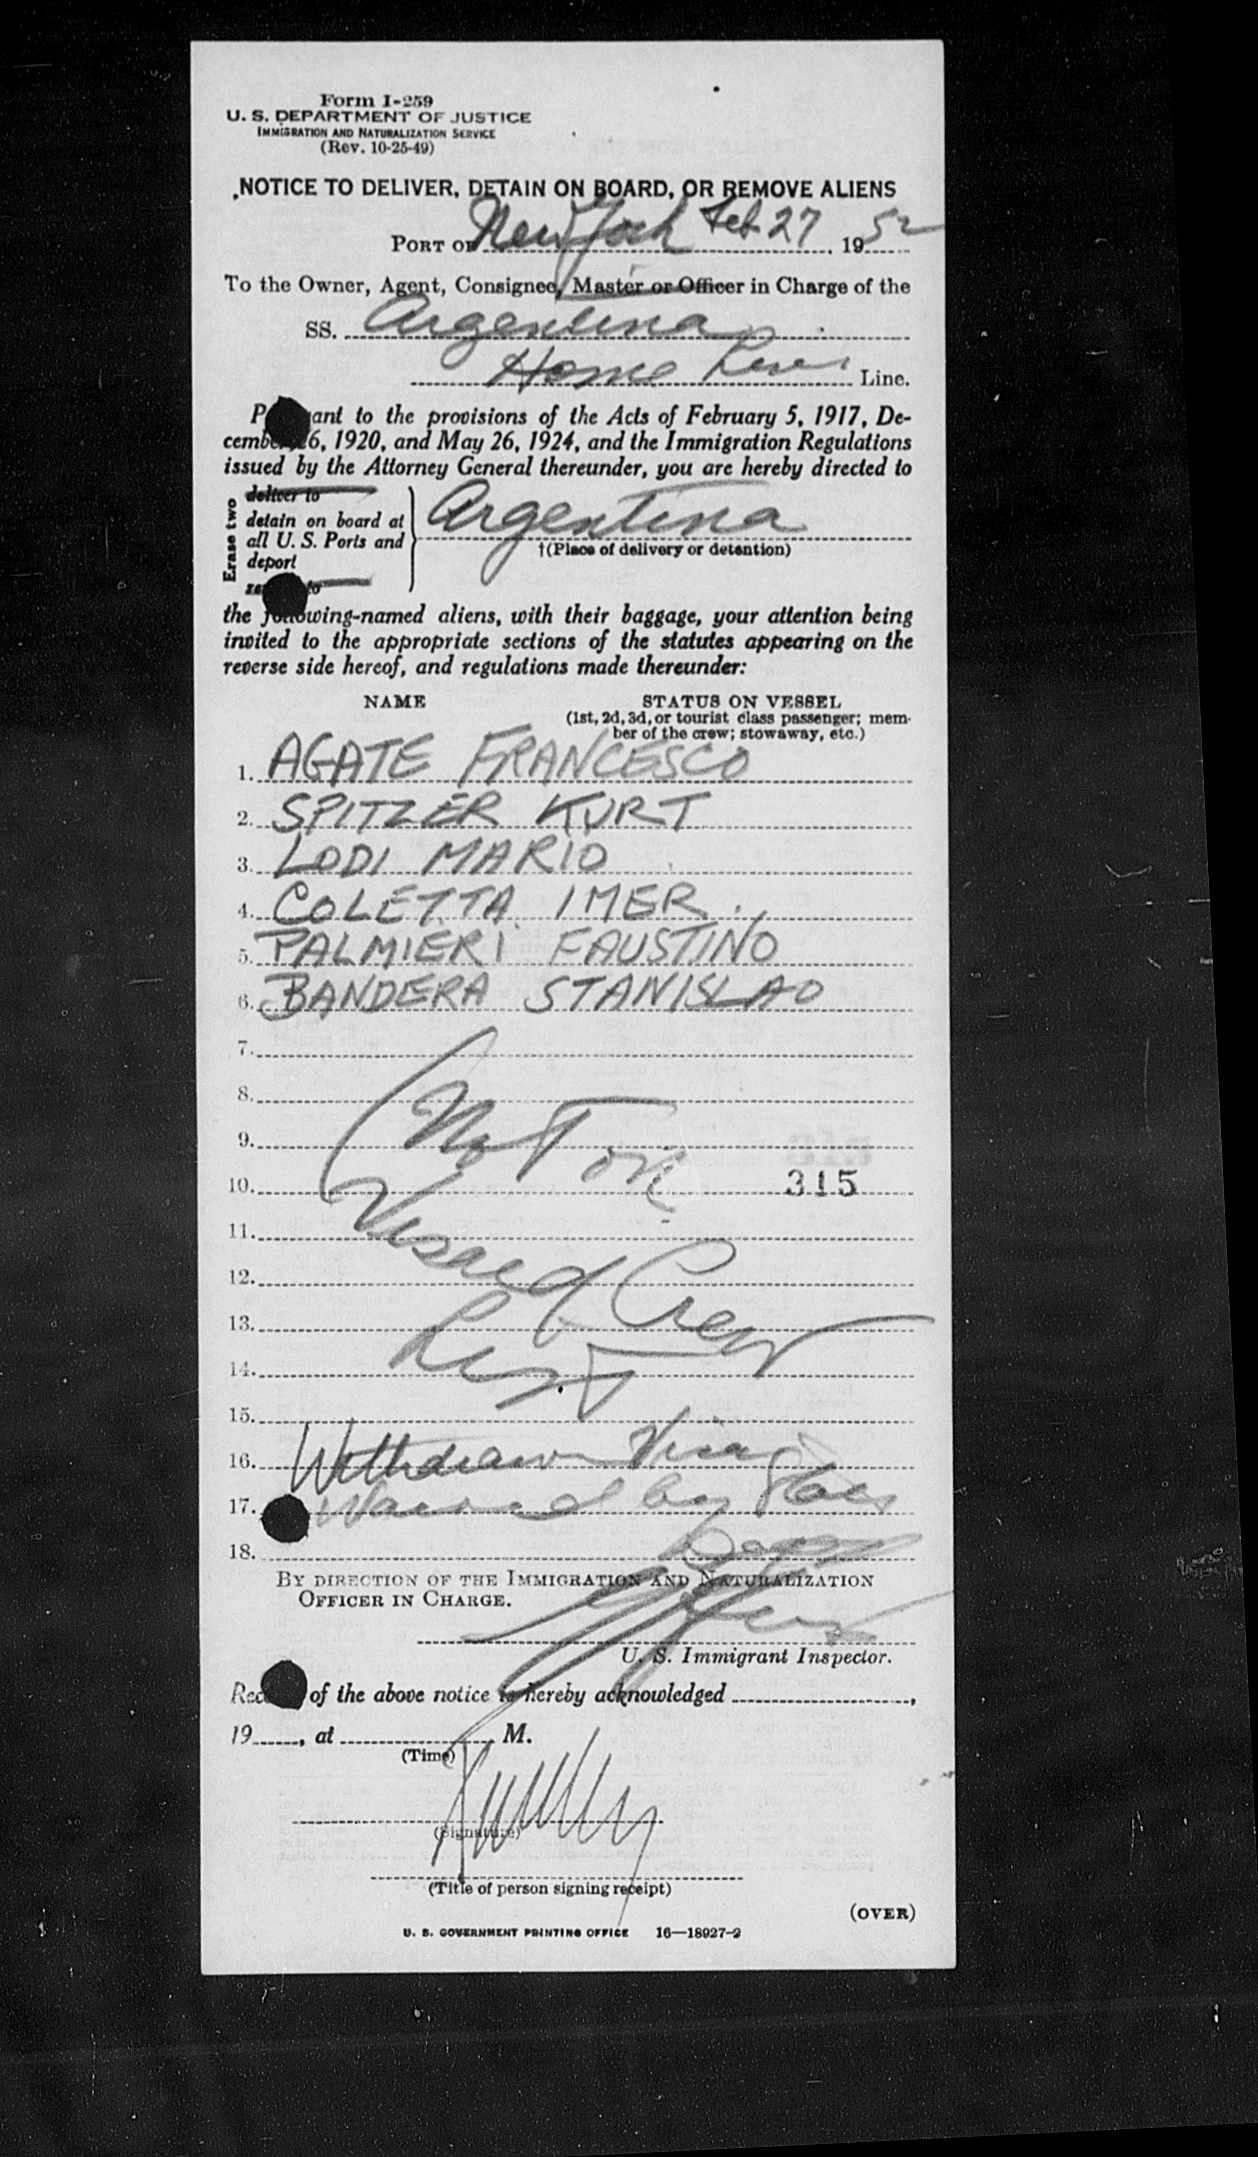 Form I-259
U. S. DEPARTMENT OF JUSTICE
IMMIGRATION AND NATURALIZATION SERVICE
(Rev. 10-25-49)
NOTICE TO DELIVER, DETAIN ON BOARD, OR REMOVE ALIENS
PORT OF New York Feb. 27, 1952
To the Owner, Agent, Consignee, Master or Officer in Charge of the
SS. Argentina
Home Lines Line.
P ant to the provisions of the Acts of February 5, 1917, De-
cember 26, 1920, and May 26, 1924, and the Immigration Regulations
issued by the Attorney General thereunder, you are hereby directed to
Erase two
deliver to
detain on board at
all U. S. Ports and
deport
to
Argentina
†(Place of delivery or detention)
the following-named aliens, with their baggage, your attention being
invited to the appropriate sections of the statutes appearing on the
reverse side hereof, and regulations made thereunder:
NAME STATUS ON VESSEL
(1st, 2d, 3d, or tourist class passenger; mem-
ber of the crew; stowaway, etc.)
1. AGATE FRANCESCO
2. SPITZER KURT
3. LODI MARIO
4. COLETTA IMER.
5. PALMIERI FAUSTINO
6. BANDERA STANISLAO
7.
8.
9. Not on
10. 315
11. Visaed Crew
12.
13.
14. List
15.
16. Withdrawn Visa
17. Waived by State
18.
BY DIRECTION OF THE IMMIGRATION AND NATURALIZATION
OFFICER IN CHARGE.
U. S. Immigrant Inspector.
Rec of the above notice is hereby acknowledged ,
19 , at M.
(Time)
(Signature)
(Title of person signing receipt)
(OVER)
U. S. GOVERNMENT PRINTING OFFICE 16—18927-2